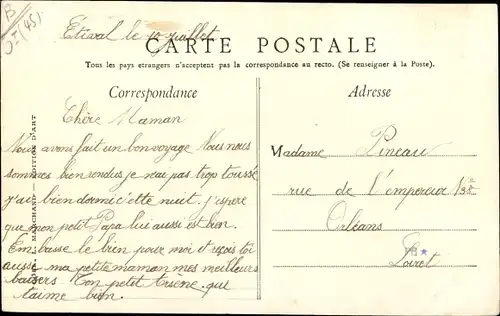 B
(45)
Etival le 12 juillet
CARTE POSTALE
Tous les pays etrangers n'acceptent pas la correspondance au recto. (Se renseigner à la Poste).
Correspondance
Adresse
Chère Maman
Nous avons fait un bon voyage Nous nous
sommes bien rendus je n'ai pas trop toussé
j'ai bien dormi cette nuit. j'espère
que mon petit Papa lui aussi est bien.
Embasse le bien pour moi et reçois toi
aussi ma petite maman mes meilleurs
baisers Ton petit Arsene. qui
t'aime bien.
Madame Pineau
rue de l'empereur
Orléans
Loiret
ÉDITION D'ART